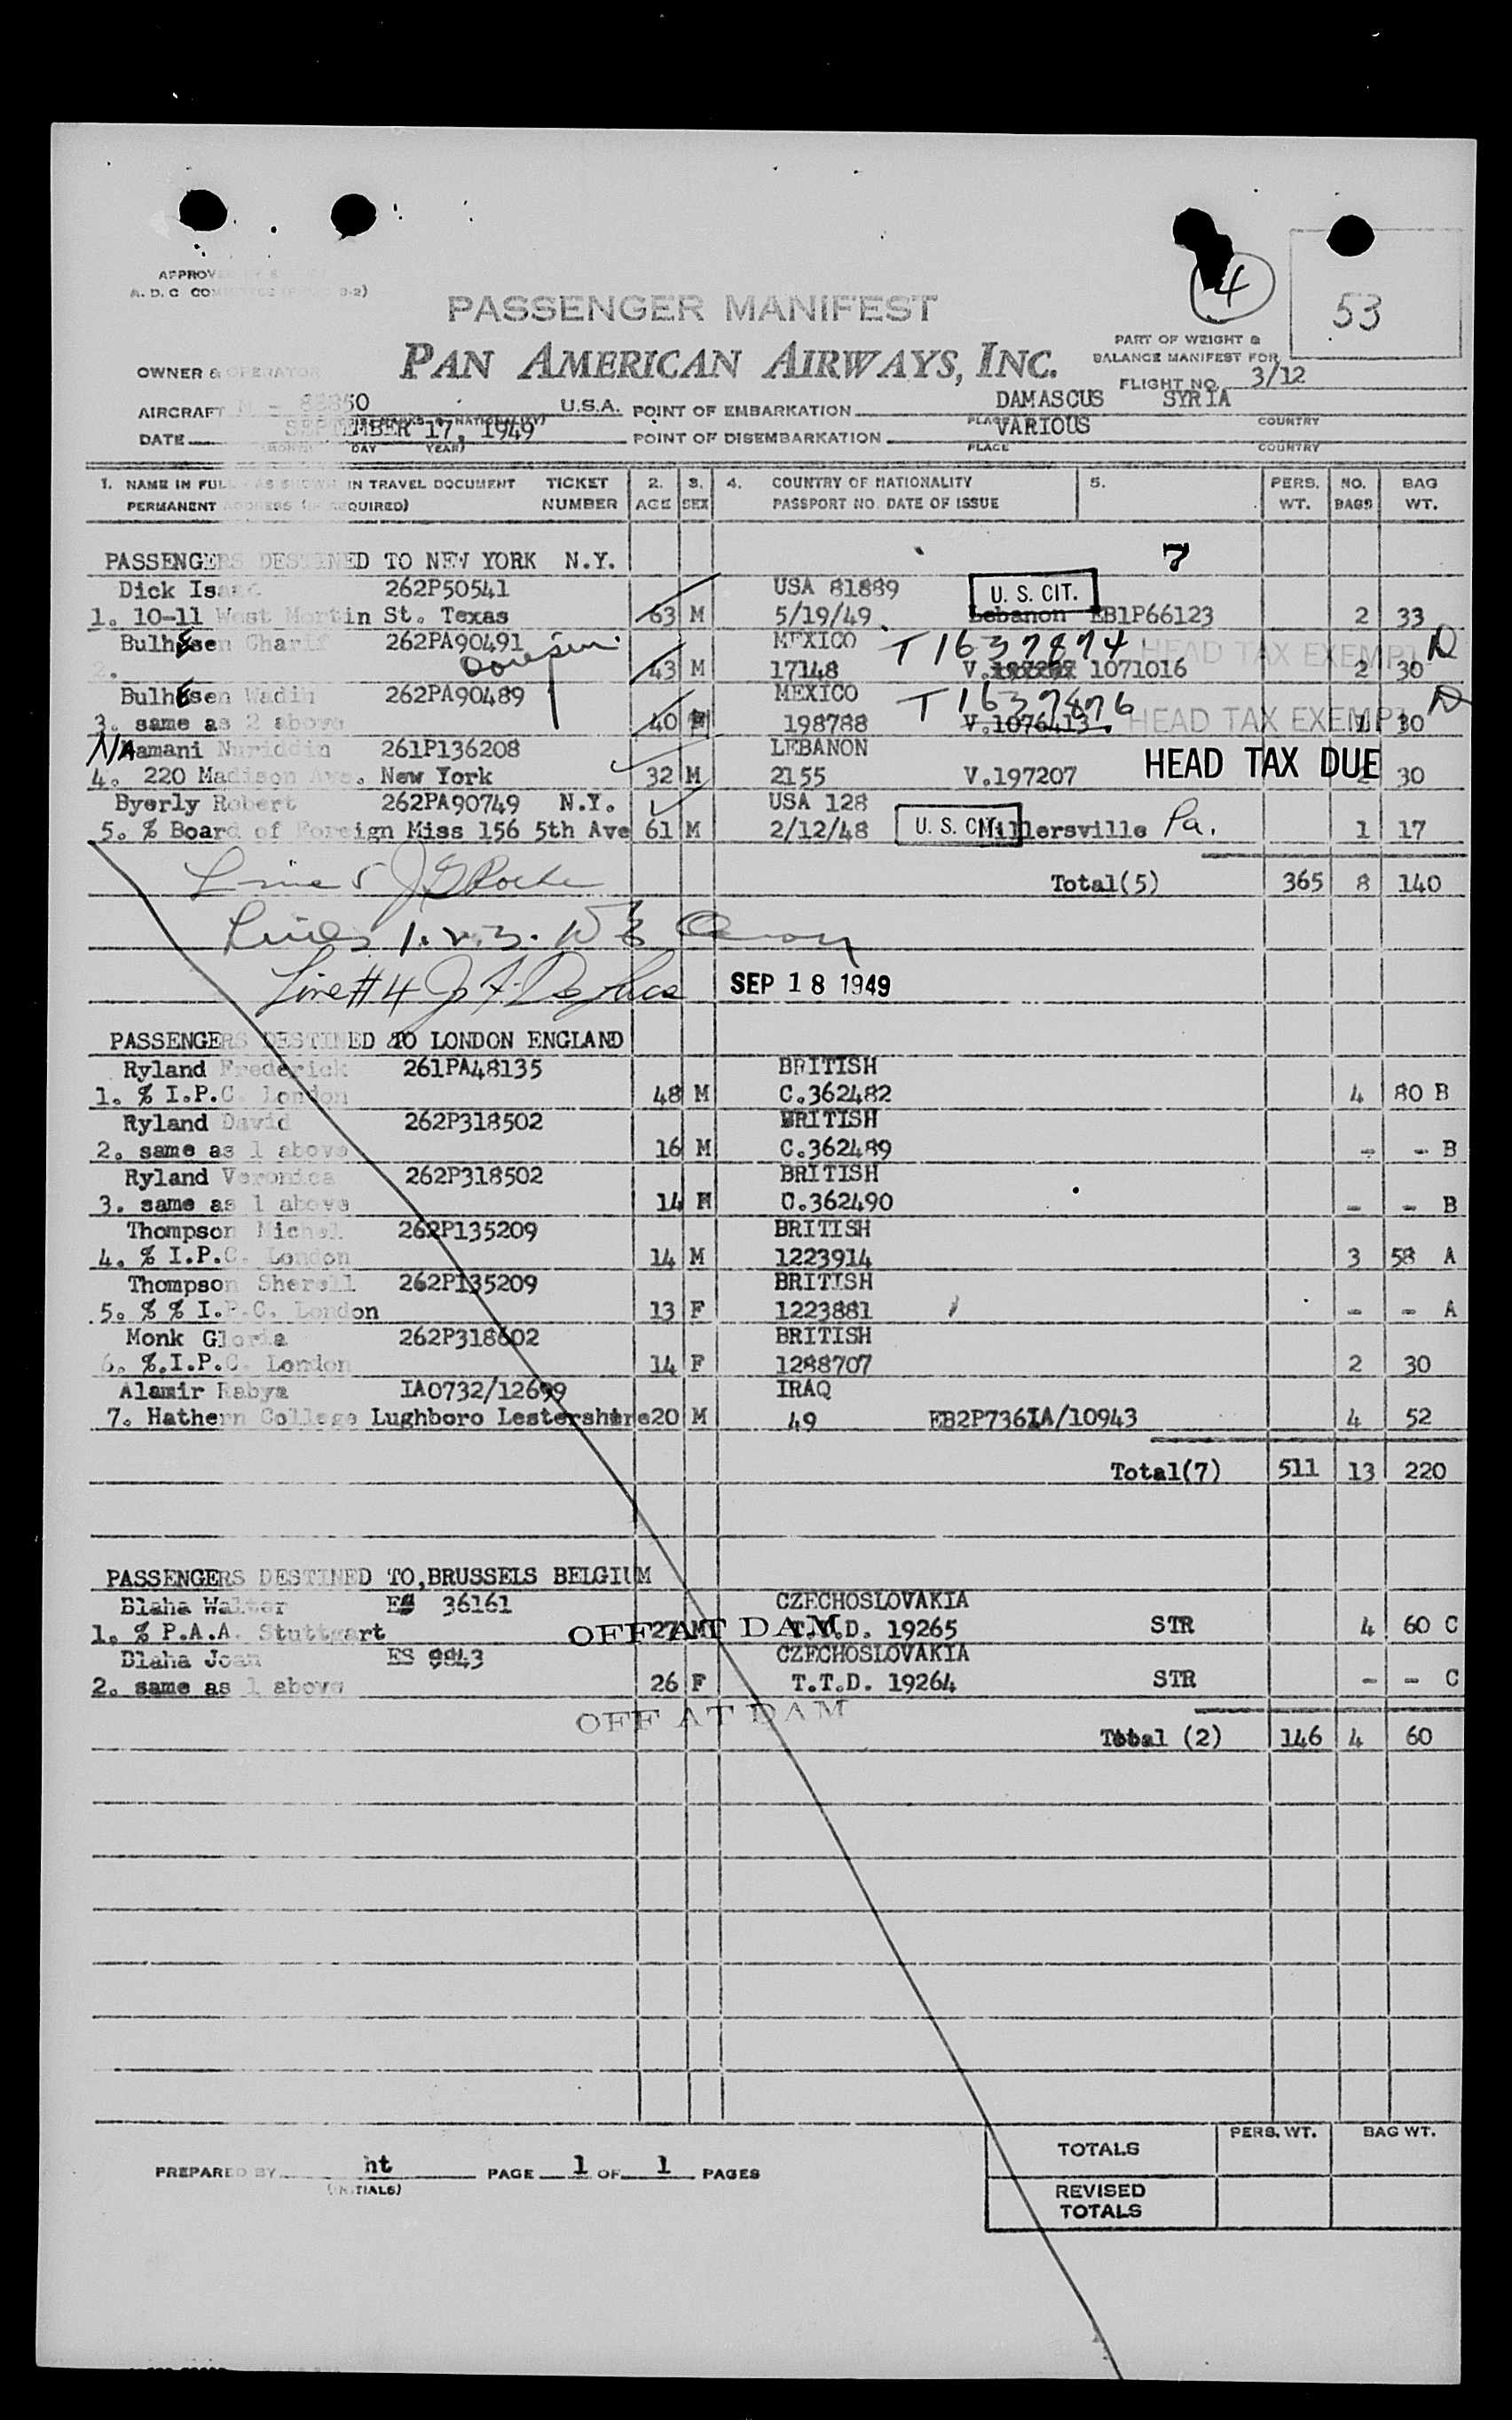 4
53
APPROV
A. D. C
PASSENGER MANIFEST
PAN AMERICAN AIRWAYS, INC.
PART OF WEIGHT &
BALANCE MANIFEST FOR
FLIGHT NO. 3/12
OWNER & OPERATOR
AIRCRAFT N - 88850 U.S.A. POINT OF EMBARKATION DAMASCUS SYRIA
PLACE COUNTRY
DATE SEPTEMBER 17, 1949 POINT OF DISEMBARKATION VARIOUS
DAY YEAR) PLACE COUNTRY
1. NAME IN FULL AS SHOWN IN TRAVEL DOCUMENT TICKET 2. 3. 4. COUNTRY OF NATIONALITY 5. PERS. NO. BAG
PERMANENT ADDRESS (IF REQUIRED) NUMBER AGE SEX PASSPORT NO. DATE OF ISSUE WT. BAGS WT.
PASSENGERS DESTINED TO NEW YORK N.Y. 7
Dick Isaac 262P50541 USA 81889 U. S. CIT.
1. 10-11 West Mortin St. Texas 63 M 5/19/49 Lebanon EB1P66123 2 33
Bulhosen Charif 262PA90491 MEXICO T1637874 HEAD TAX EXEMPT
2. 43 M 17148 V. 1071016 2 30
Bulhosen Wadih 262PA90489 MEXICO T1637876
3. same as 2 above 40 198788 V.1076413 HEAD TAX EXEMPT 1 30
Namani Nuriddin 261P136208 LEBANON HEAD TAX DUE
4. 220 Madison Ave. New York 32 M 2155 V.197207 2 30
Byerly Robert 262PA90749 N.Y. USA 128
5. % Board of Foreign Miss 156 5th Ave 61 M 2/12/48 U. S. CIT. Millersville Pa. 1 17
Line 5 J G Roche Total(5) 365 8 140
Lines 1. 2. 3.
Line #4 SEP 18 1949
PASSENGERS DESTINED TO LONDON ENGLAND
Ryland Frederick 261PA48135 BRITISH
1. % I.P.C. London 48 M C.362482 4 80 B
Ryland David 262P318502 BRITISH
2. same as 1 above 16 M C.362489 - - B
Ryland Veronica 262P318502 BRITISH
3. same as 1 above 14 C.362490 - - B
Thompson Michel 262P135209 BRITISH
4. % I.P.C. London 14 M 1223914 3 58 A
Thompson Sherell 262P135209 BRITISH
5. % % I.P.C. London 13 F 1223881 - - A
Monk Gloria 262P318602 BRITISH
6. %.I.P.C. London 14 F 1288707 2 30
Alamir Rabya IA0732/12699 IRAQ
7. Hathern College Lughboro Lestershire 20 M 49 EB2P736IA/10943 4 52
Total(7) 511 13 220
PASSENGERS DESTINED TO,BRUSSELS BELGIUM
Blaha Walter ES 36161 CZECHOSLOVAKIA
1. % P.A.A. Stuttgart OFF AT DAM 27 M T.T.D. 19265 STR 4 60 C
Blaha Joan ES 9843 CZECHOSLOVAKIA
2. same as 1 above 26 F T.T.D. 19264 STR - - C
OFF AT DAM
Total (2) 146 4 60
PERS. WT. BAG WT.
TOTALS
PREPARED BY ht PAGE 1 OF 1 PAGES
(INITIALS)
REVISED
TOTALS